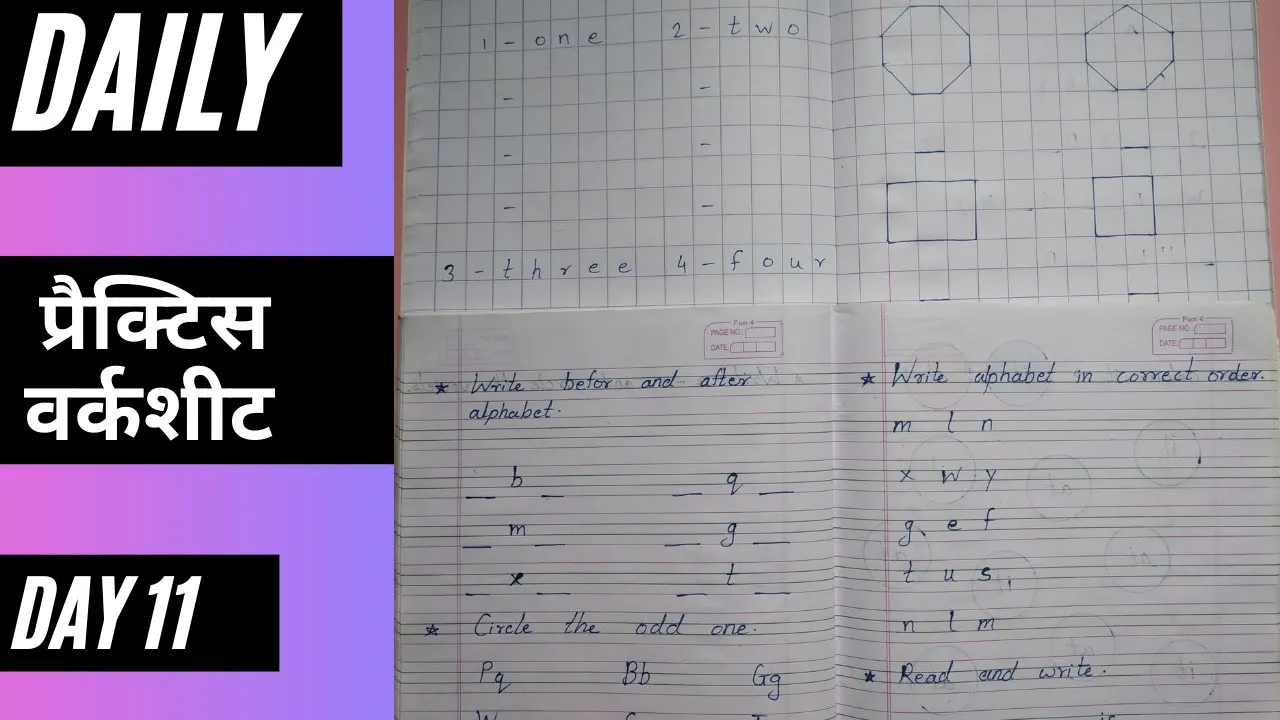 DAILY
प्रैक्टिस
वर्कशीट
DAY 11
1 - one 2 - two
-
-
-
-
-
-
3 - three 4 - four
Fun 4
PAGE NO.:
DATE:
* Write befor and after
alphabet.
_ b _ _ q _
_ m _ _ g _
_ x _ _ t _
* Circle the odd one.
Pq Bb Gg
Fun 4
PAGE NO.:
DATE:
* Write alphabet in correct order.
m l n
x w y
g e f
t u s
n l m
* Read and write.